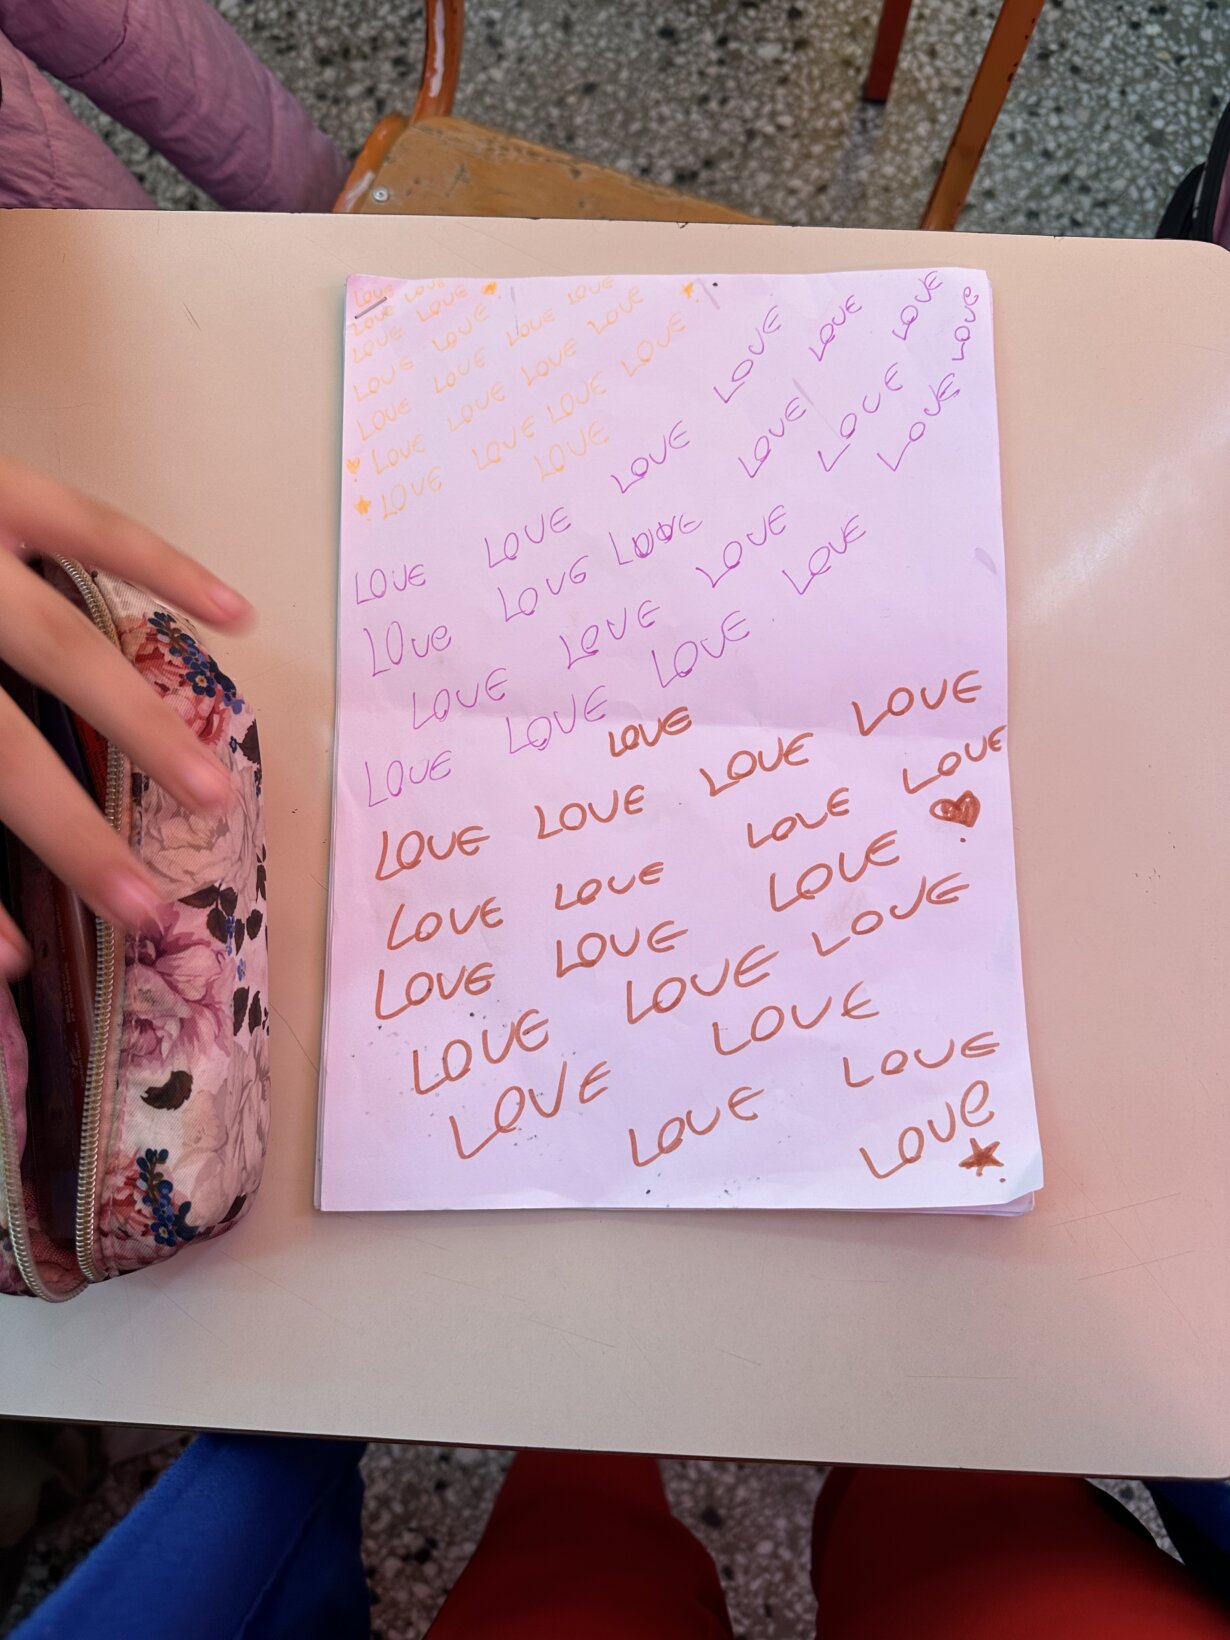 LOVE LOVE
LOVE LOVE LOVE LOVE
LOVE LOVE LOVE LOVE
LOVE LOVE LOVE LOVE
LOVE LOVE LOVE LOVE
LOVE LOVE LOVE
LOVE LOVE
LOVE LOVE LOVE LOVE LOVE LOVE
LOve LOVE LOVE LOVE LOVE LOVe
LOVE LOVE LOVE LOVE
LOVE LOVE LOVE LOVE
LOVE
LOVE LOVE LOVE LOVE
LOVE LOVE LOVE LOVE
LOVE LOVE LOVE
LOVE LOVE LOVE
LOVE LOVE
LOVE LOVE
LOVe